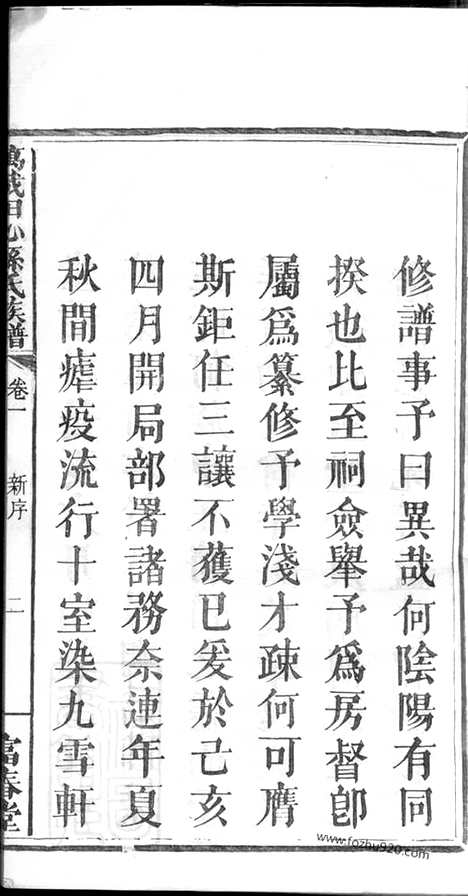 修譜事予曰異哉何陰陽有同
揆也比至祠僉舉予爲房督卽
屬爲纂修予學淺才疎何可膺
斯鉅任三讓不獲已爰於己亥
四月開局部署諸務奈連年夏
秋間瘧疫流行十室染九雪軒
萬載田心孫氏族譜
卷一
新序
二
富春堂
www.fozhu920.com